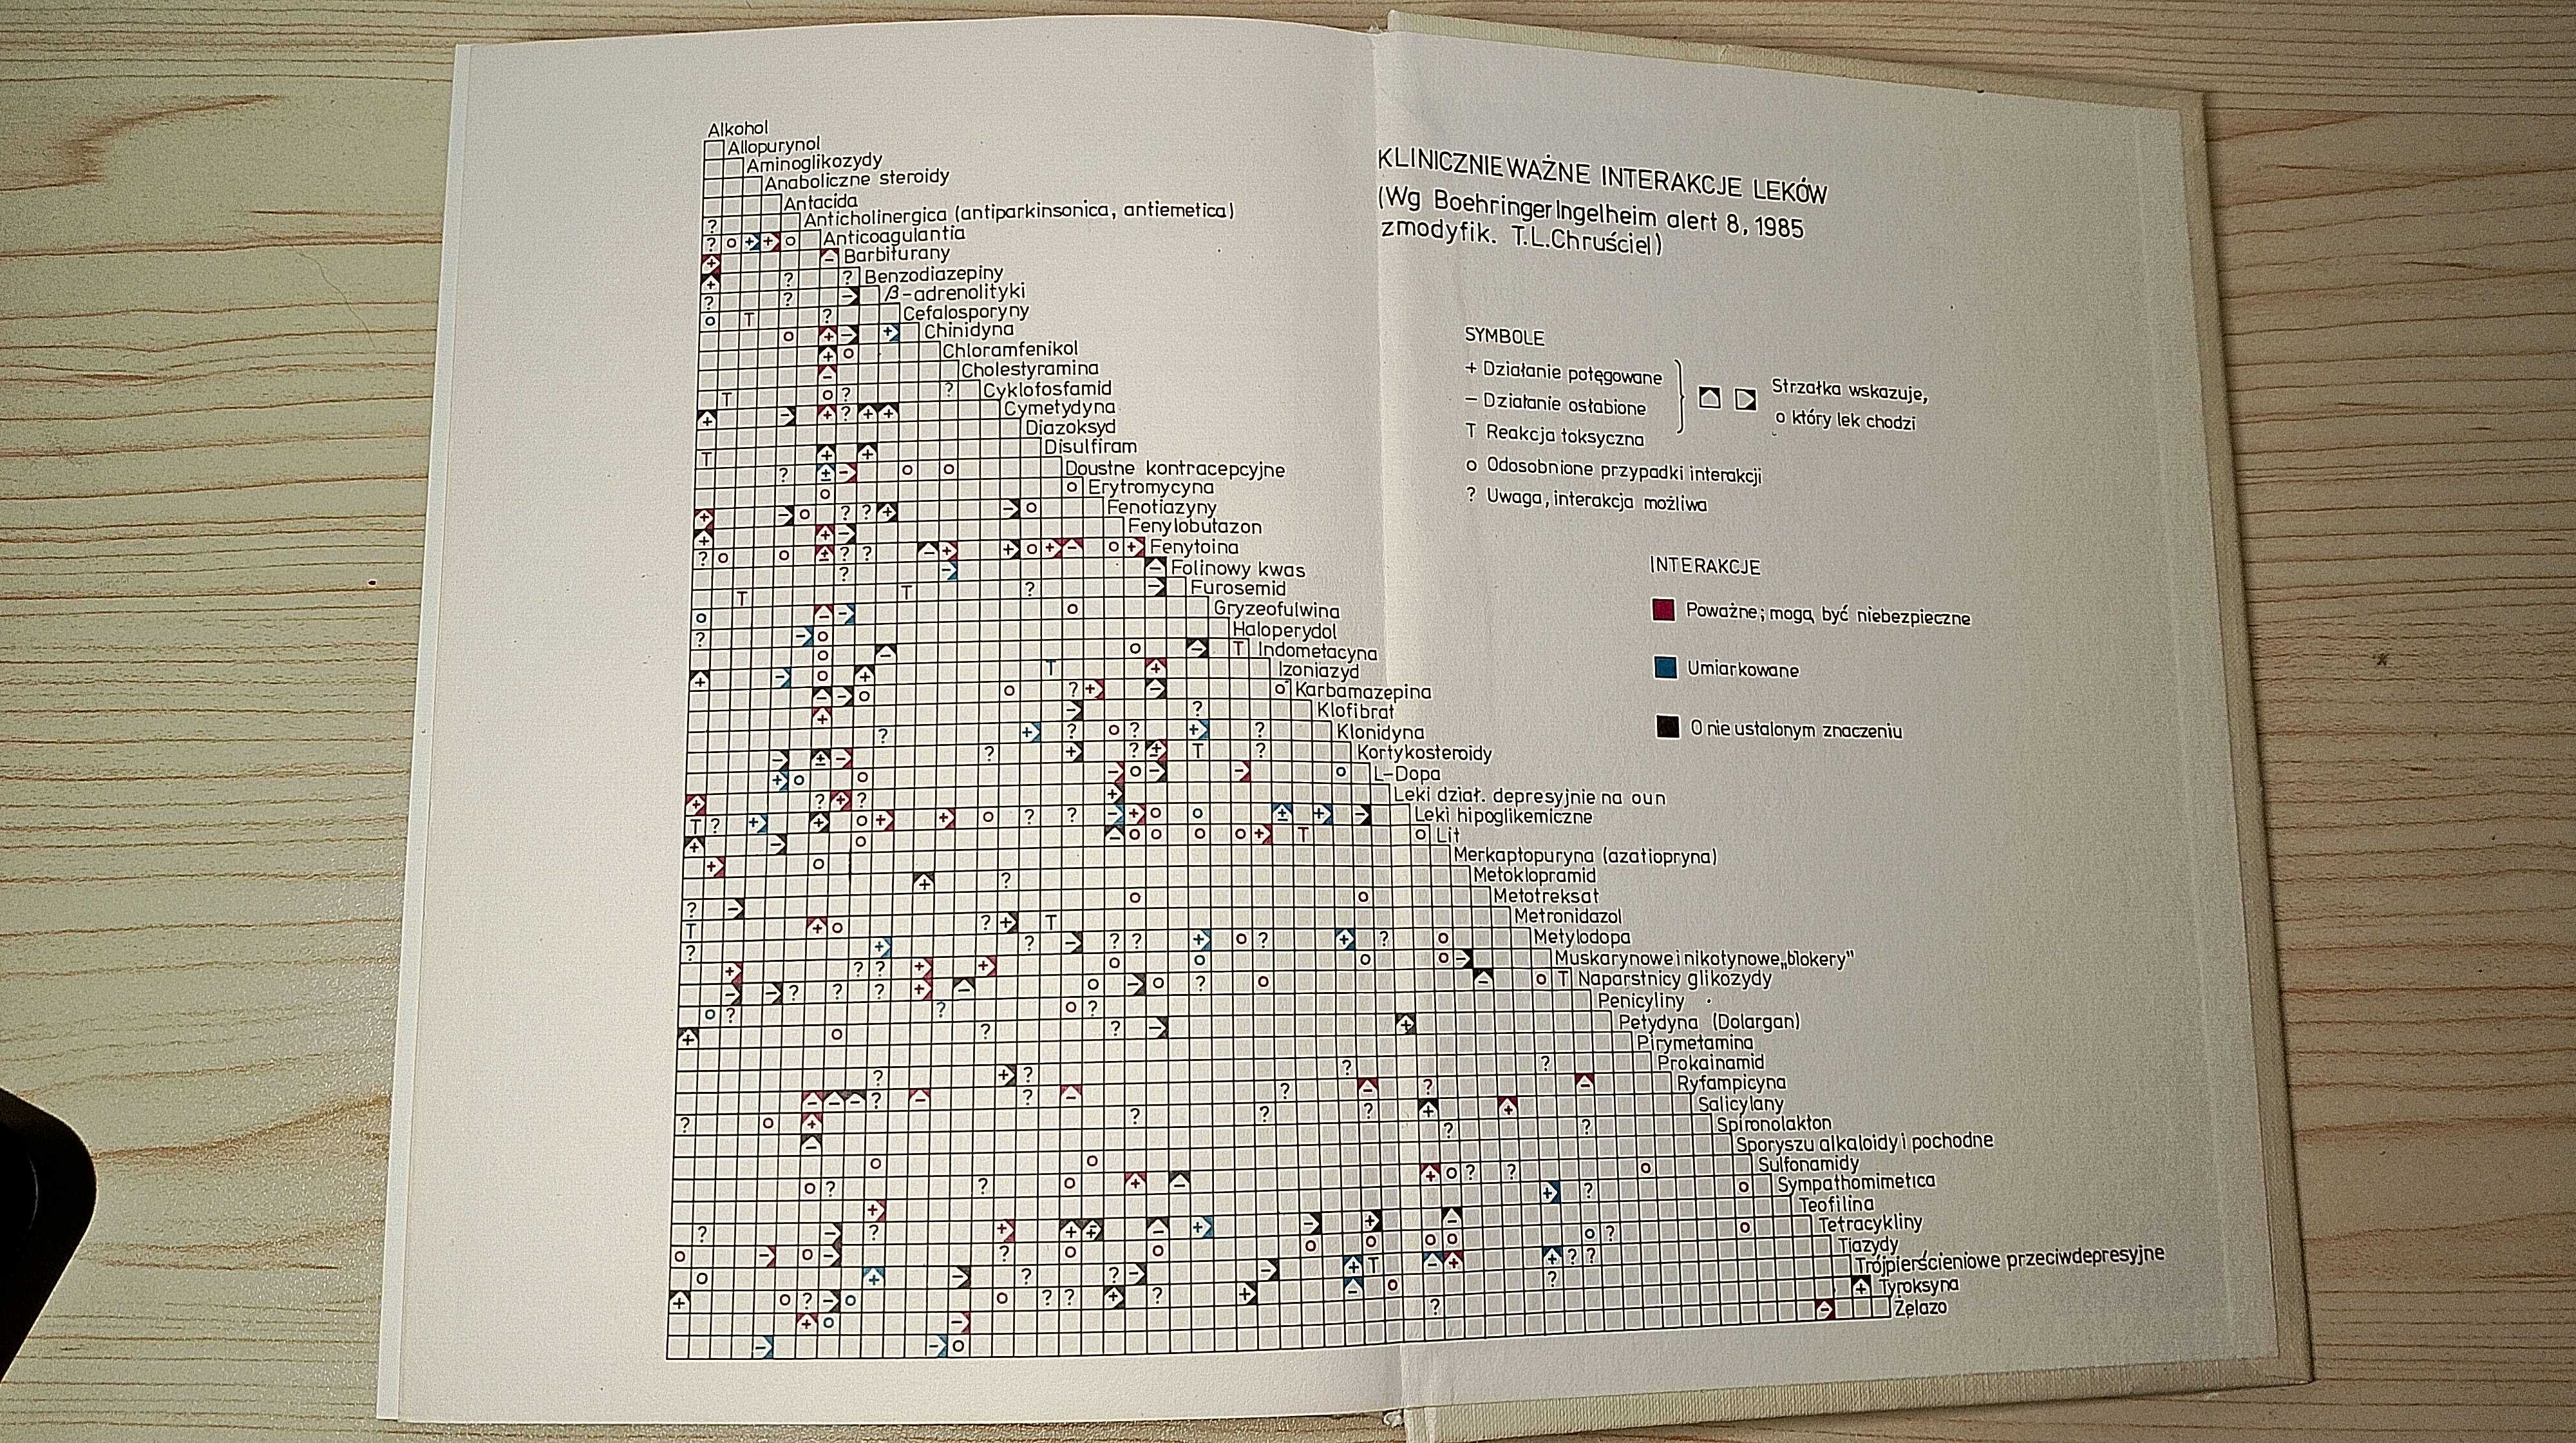 Alkohol
Allopurynol
Aminoglikozydy
Anaboliczne steroidy
Antacida
Anticholinergica (antiparkinsonica, antiemetica)
Anticoagulantia
Barbiturany
Benzodiazepiny
β-adrenolityki
Cefalosporyny
Chinidyna
Chloramfenikol
Cholestyramina
Cyklofosfamid
Cymetydyna
Diazoksyd
Disulfiram
Doustne kontracepcyjne
Erytromycyna
Fenotiazyny
Fenylobutazon
Fenytoina
Folinowy kwas
Furosemid
Gryzeofulwina
Haloperydol
Indometacyna
Izoniazyd
Karbamazepina
Klofibrat
Klonidyna
Kortykosteroidy
L-Dopa
Leki dział. depresyjnie na oun
Leki hipoglikemiczne
Lit
Merkaptopuryna (azatiopryna)
Metoklopramid
Metotreksat
Metronidazol
Metylodopa
Muskarynowe i nikotynowe „blokery"
Naparstnicy glikozydy
Penicyliny
Petydyna (Dolargan)
Pirymetamina
Prokainamid
Ryfampicyna
Salicylany
Spironolakton
Sporyszu alkaloidy i pochodne
Sulfonamidy
Sympathomimetica
Teofilina
Tetracykliny
Tiazydy
Trójpierścieniowe przeciwdepresyjne
Tyroksyna
Żelazo
KLINICZNIE WAŻNE INTERAKCJE LEKÓW
(Wg Boehringer Ingelheim alert 8, 1985
zmodyfik. T.L.Chruściel)
SYMBOLE
+ Działanie potęgowane
− Działanie osłabione
T Reakcja toksyczna
o Odosobnione przypadki interakcji
? Uwaga, interakcja możliwa
Strzałka wskazuje,
o który lek chodzi
INTERAKCJE
Poważne; mogą być niebezpieczne
Umiarkowane
O nie ustalonym znaczeniu